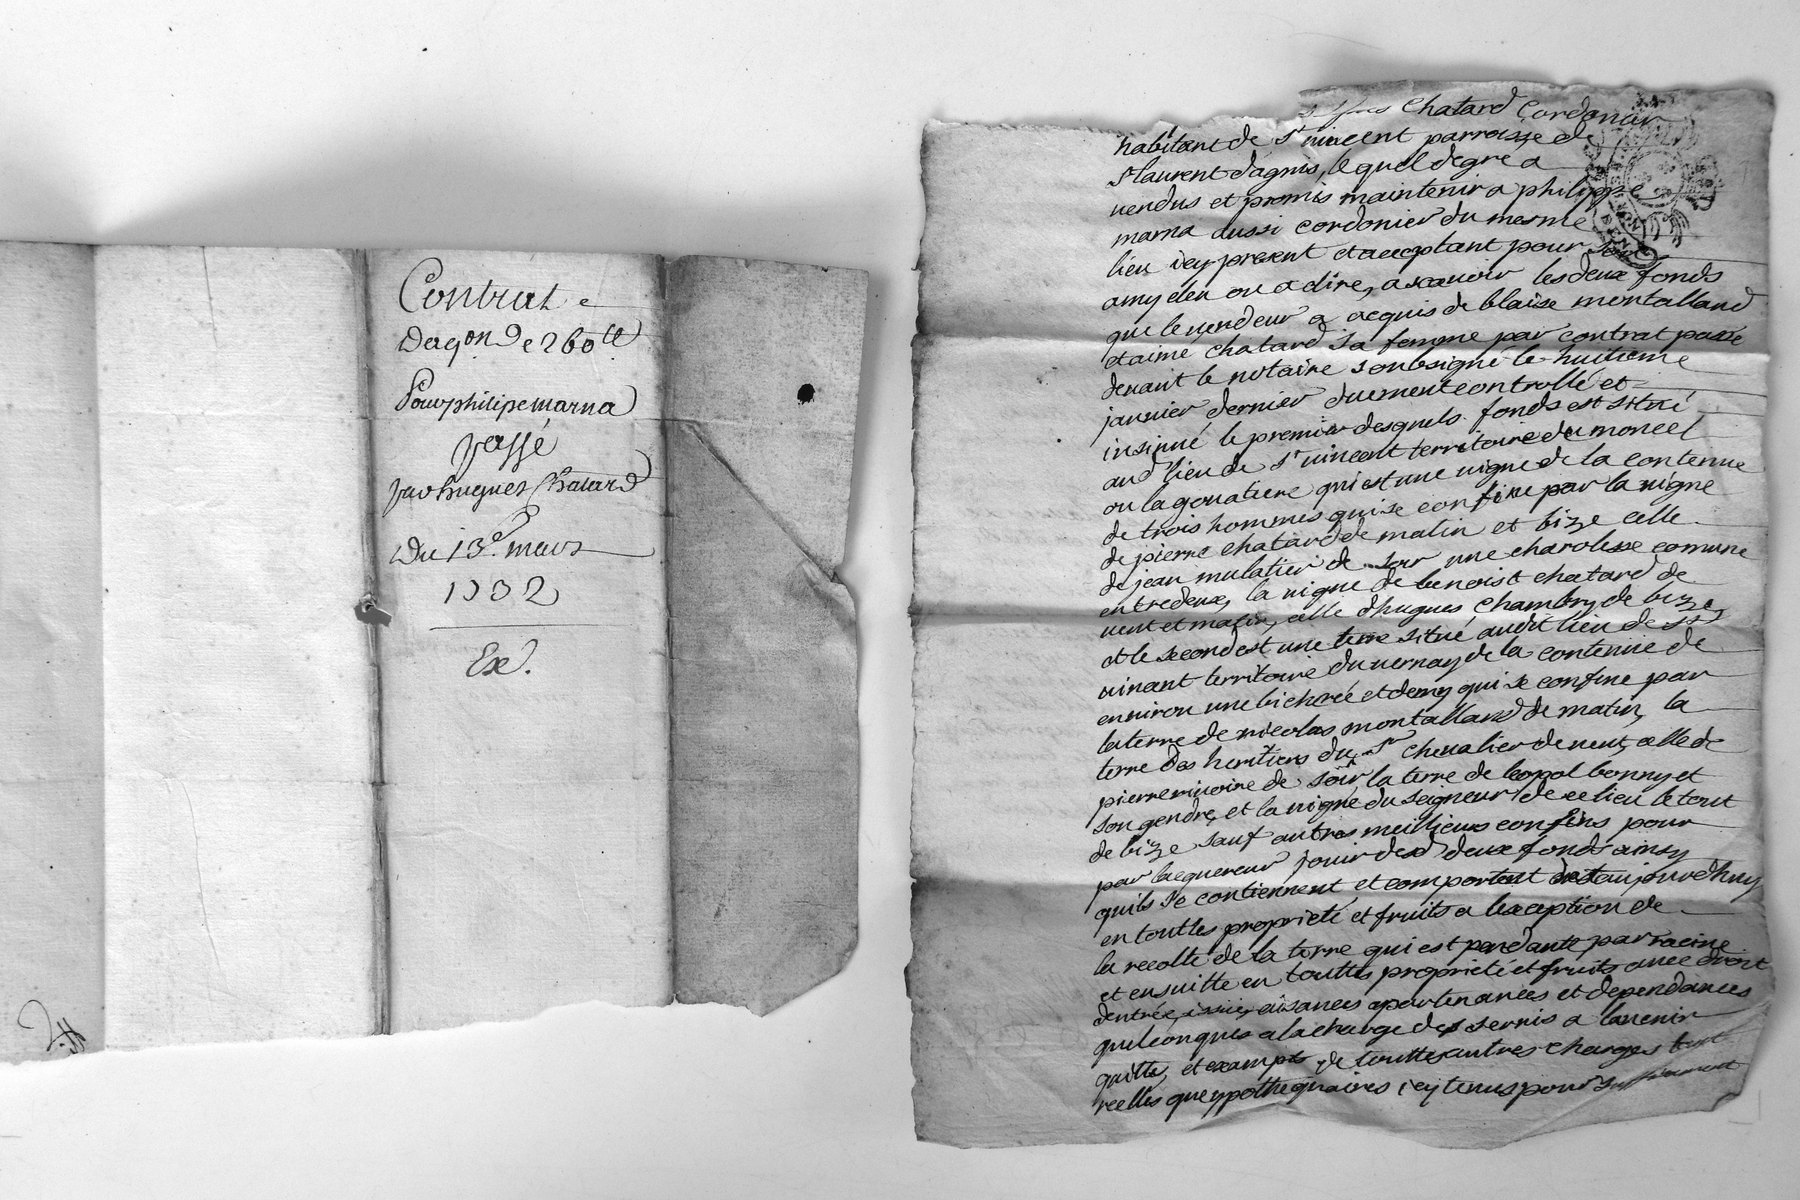 Contrat
Daq.on De 260 ll
Pour philipe marna
passé
par hugues Chatard
Du 13e. mars
1732
Ex.
hugues Chatard Cordonier
habitant de St vincent parroisse de
St laurent dagnis, lequel degre a
vendus et promis maintenir a philippe
marna aussi cordonier du mesme
lieu icy present et acceptant pour son
amy eleu ou a dire, a scavoir les deux fonds
que le vendeur a acquis de blaise montalland
et aime chatard sa femme par contrat passé
devant le notaire soubsigné le huitieme
janvier dernier duement controllé et
insinué le premier desquels fonds est situé
aud lieu de St vincent territoire du moncel
ou la gouatiere qui est une vigne de la contenue
de trois hommes qui se confine par la vigne
de pierre chatard de matin et bize celle
de jean mulatier de soir une charolesse comune
entredeux, la vigne de benoist chatard de
vent et matin, celle dhugues Chambry de bize,
et le second est une terre situé audit lieu de St
vincant territoire du vernay de la contenue de
environ une bicherée et demy qui se confine par
la terre de nicolas montalland de matin, la
terre des heritiers du Sr chevalier de vent, celle de
pierre rivoire de soir la terre de leopol bonny et
son gendre, et la vigne du seigneur de ce lieu le tout
de bize sauf autres meillieurs confins pour
par lacquereur jouir desd deux fonds ainsy
quils se contiennent et comportent aujourdhuy
en touttes proprieté et fruits a lexception de
la recolte de la terre qui est pendante par racine
et ensuitte en touttes proprieté et fruits avec droit
dentrée, issüe, aisances apartenances et dependances
quelconques a la charge des servis a lavenir
quitte, et exampt de touttes autres charges tant
reelles que ypothequaires icy tenus pour suffisament